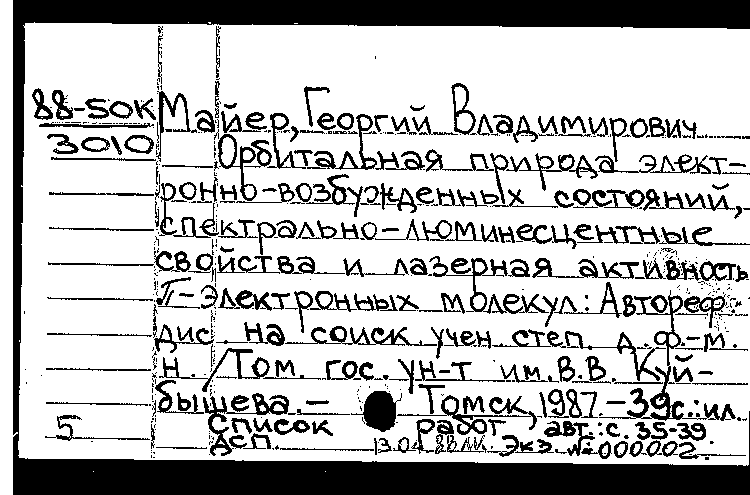 88-50К Майер, Георгий Владимирович
3010 Орбитальная природа элект-
ронно-возбужденных состояний,
спектрально-люминесцентные
свойства и лазерная активность
π-электронных молекул: Автореф.
дис. на соиск. учен. степ. д. ф.-м.
н. /Том. гос. ун-т им. В.В. Куй-
бышева. – Томск, 1987. – 39с.: ил.
5 Список работ авт.: с. 35-39
Дсп. 13.04.88 Экз. № 000002.